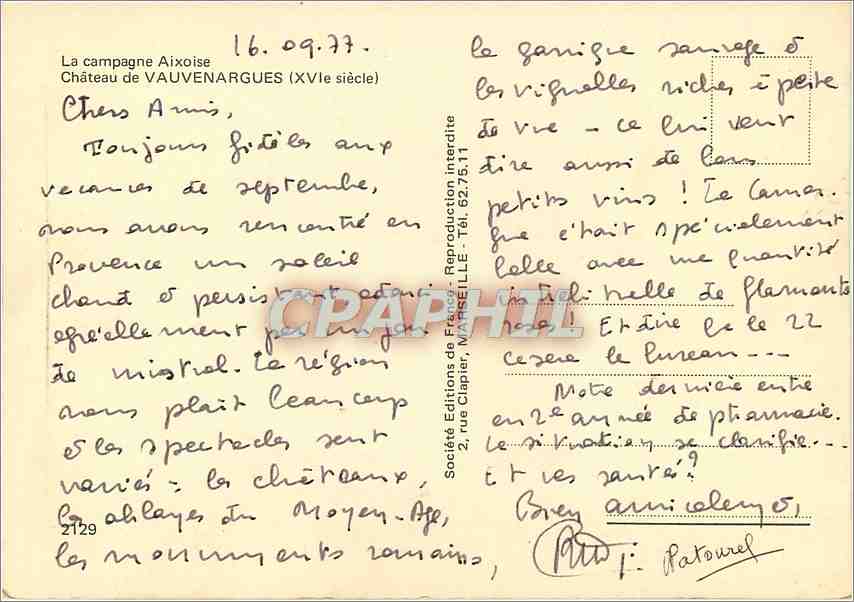 16.09.77.
La campagne Aixoise
Château de VAUVENARGUES (XVIe siècle)
Chers Amis,
Toujours fidèles aux
vacances de septembre,
nous avons rencontré en
Provence un soleil
chaud et persistant adouci
agréablement par un peu
de mistral. La région
nous plait beaucoup
et les spectacles sont
variés : les châteaux,
les abbayes du Moyen-Age,
2129
les monuments romains,
Société Editions de France - Reproduction interdite
2, rue Clapier, MARSEILLE - Tél. 62.75.11
la garrigue sauvage et
les vignobles riches à perte
de vue - ce qui veut
dire aussi de bons
petits vins ! La Camar-
gue c'était spécialement
belle avec une quantité
de flamants
roses ! Et dire que le 22
ce sera le bureau ---
Notre dernière entre
en 2e année de pharmacie.
La situation se clarifie...
Et vos santés ?
Bien amicalement,
Patourel
CPAPHIL